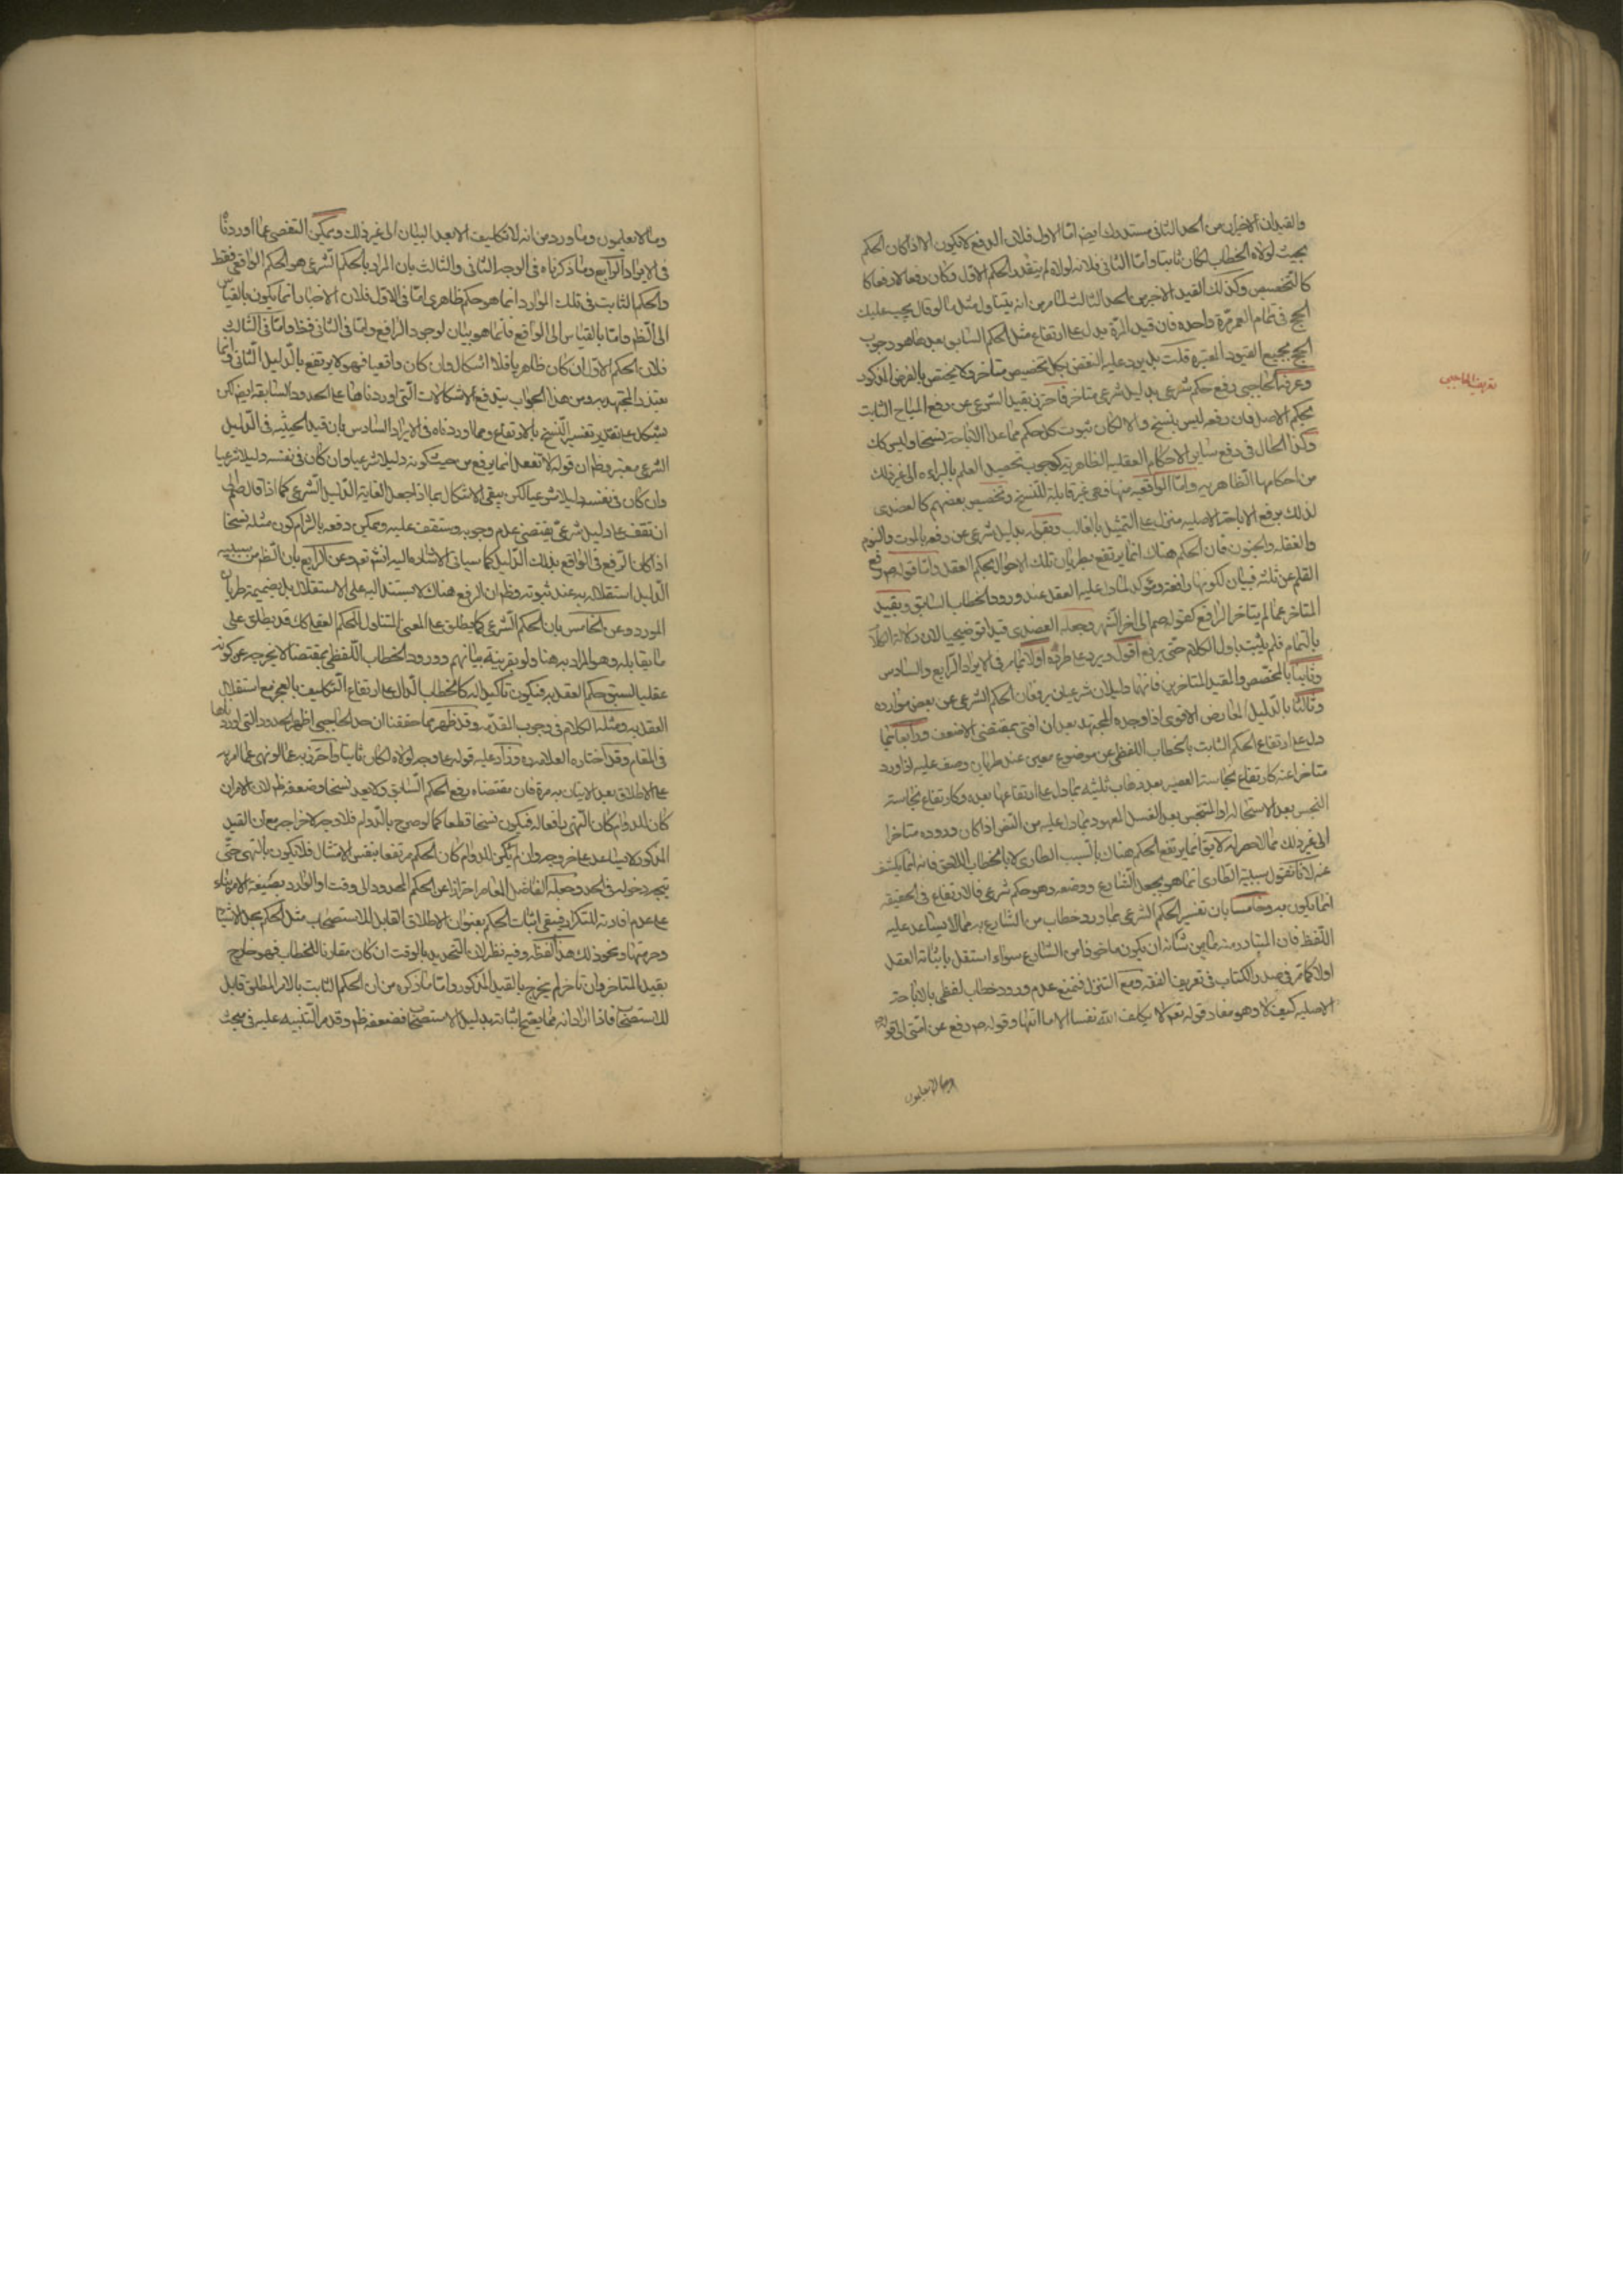 والقيدان الاخيران من الحد الثاني مستدرك ايضا اما الاول فلان الرفع لا يكون الا اذا كان الحكم
بحيث لولاه الخطاب لكان ثابتا واما الثاني فلانه لولاه لم يتقدم الحكم الاول وكان دفعا لا رفعا كا
كالتخصيص وكذلك القيد الاخير من الحد الثالث لما مر من انه يتناول مثل ما لو قال يجب عليك
الحج في تمام العمر مرة واحدة فان قيد المرة يدل على ارتفاع مثل الحكم السابق بعد ما هو وجوب
الحج بجميع القيود المعتبرة قلت بل يرد عليه النقض بكل تخصيص متاخر ولا يختص بالفرض المذكور
وعرفه الحاجبي رفع حكم شرعي بدليل شرعي متاخر فاحترز بقيد الشرعي عن رفع المباح الثابت
بحكم الاصل فان رفعه ليس بنسخ والا لكان ثبوت كل حكم مما عدا الاباحة نسخا وليس كك
وكذا الحال في رفع ساير الاحكام العقلية الظاهرية كوجوب تحصيل العلم بالبراءة الى غير ذلك
من احكامها الظاهرية واما الواقعية منها فهي غير قابلة للنسخ وتخصيص بعضهم كالعضدي
لذلك برفع الاباحة الاصلية منزل على التمثيل بالغالب وبقوله بدليل شرعي عن رفعه بالموت والنوم
والغفلة والجنون فان الحكم هناك انما يرتفع بطريان تلك الاحوال بحكم العقل واما قوله ص رفع
القلم عن ثلثة فبيان لكونها رافعة ومؤكد لما دل عليه العقل عند ورود الخطاب السابق وبقيد
المتاخر عما لم يتاخر الرافع كقوله صم الى اخر الشهر وجعله العضدي قيدا توضيحيا لان دلالة الكلام
بالتمام فلم يثبت باول الكلام حتى يرفع اقول ويرد على طرده اولا ما مر في الايراد الرابع والسادس
وثانيا بالمخصص والمقيد المتاخرين فانهما دليلان شرعيان يرفعان الحكم الشرعي عن بعض موارده
وثالثا بالدليل المعارض الاقوى اذا وجده المجتهد بعد ان افتى بمقتضى الاضعف ورابعا بما
دل على ارتفاع الحكم الثابت بالخطاب اللفظي عن موضوع معين عند طريان وصف عليه اذا ورد
متاخرا عنه كارتفاع نجاسة العصير بعد ذهاب ثلثيه بما دل على ارتفاعها بعده وكارتفاع نجاسة
النجس بعد الاستحالة او المتنجس بعد الغسل المعهود بما دل عليه من النص اذا كان وروده متاخرا
الى غير ذلك مما لا حصر له لا يق انما يرتفع الحكم هناك بالسبب الطاري لا بالخطاب اللاحق فانه انما يكشف
عنه لانا نقول سببية الطاري انما هو بجعل الشارع ووضعه وهو حكم شرعي فالارتفاع في الحقيقة
انما يكون به وخامسا بان تفسير الحكم الشرعي بما ورد خطاب من الشارع به مما لا يساعد عليه
اللفظ فان المتبادر منه ما من شانه ان يكون ماخوذا من الشارع سواء استقل باثباته العقل
اولا كما مر في صدر الكتاب في تعريف الفقه ومع التنزل فنمنع عدم ورود خطاب لفظي بالاباحة
الاصلية كيف لا وهو مفاد قوله تعم لا يكلف الله نفسا الا ما اتيها وقوله ص رفع عن امتي الى قوله
وما لا يعلمون
تعريف الحاجبي
وما لا يعلمون وما ورد من انه لا تكليف الا بعد البيان الى غير ذلك ويمكن التفصي عما اوردناه
في الايراد الرابع وما ذكرناه في الوجه الثاني والثالث بان المراد بالحكم الشرعي هو الحكم الواقعي فقط
والحكم الثابت في تلك الموارد انما هو حكم ظاهري اما في الاول فلان الاخبار انما يكون بالقياس
الى الظم واما بالقياس الى الواقع فانما هو بيان لوجود الرافع واما في الثاني فظ واما في الثالث
فلان الحكم الاول ان كان ظاهريا فلا اشكال وان كان واقعيا فهو لا يرتفع بالدليل الثاني وانما
يعتذر المجتهد به ومن هذا الجواب يندفع الاشكالات التي اوردناها على الحدود السابقة ايضا لكن
يشكل على تقدير تفسير النسخ بالارتفاع ومما اوردناه في الايراد السادس بان قيد الحيثية في الدليل
الشرعي معتبر وظ ان قوله لا تفعل انما يرفع من حيث كونه دليلا شرعيا وان كان في نفسه دليلا شرعيا
وان كان في نفسه دليلا شرعيا لكن يبقى الاشكال بما اذا جعل الغاية الدليل الشرعي كما اذا قال صلم الى
ان تقف على دليل شرعي يقتضي عدم وجوبه وستقف عليه ويمكن دفعه بالتزام كون مثله نسخا
اذا كان الرفع في الواقع بذلك الدليل كما سياتي الاشارة اليه انشم تعم وعن الرابع بان الظم من سببية
الدليل استقلاله به عند ثبوته وظ ان الرفع هناك لا يستند اليه على الاستقلال بل بضميمة طريان
المورد وعن الخامس بان الحكم الشرعي كما يطلق على المعنى المتناول للحكم العقلي كك قد يطلق على
ما يقابله وهو المراد به هنا ولو بقرينة بيانهم وورود الخطاب اللفظي بمقتضاه لا يخرجه عن كونه
عقليا لسبق حكم العقل به فيكون تاكيدا له كالخطاب الدال على ارتفاع التكليف بالعجز مع استقلال
العقل به ومثله الكلام في وجوب المقدمة وقد ظهر بما حققنا ان حد الحاجبي اظهر الحدود التي اوردناها
في المقام وقد اختاره العلامة ره وزاد عليه قوله على وجه لولاه لكان ثابتا واحترز به عما لو نهى عما امر به
على الاطلاق بعد الاتيان به مرة فان مقتضاه رفع الحكم السابق ولا يعد نسخا وضعفه ظم لان الامر ان
كان للدوام كان النهي رافعا له فيكون نسخا قطعا كما لو صرح بالدوام فلا وجه لاخراجه مع ان القيد
المذكور لا يساعد على خروجه وان لم يكن للدوام كان الحكم مرتفعا بنفس الامتثال فلا يكون بالنهي حتى
يتجه دخوله في الحد وجعله الفاضل المعاصر احترازا عن الحكم المحدود الى وقت او الوارد بصيغة الامر بناء
على عدم افادته للتكرار فيبقى اثبات الحكم بعنوان الاطلاق القابل للاستصحاب مثل الحكم بحل الاشياء
وحرمتها ونحو ذلك هذا لفظه وفيه نظر لان التحديد بالوقت ان كان مقارنا للخطاب فهو خارج
بقيد المتاخر وان تاخر لم يخرج بالقيد المذكور واما ما ذكره من ان الحكم الثابت بالامر المطلق قابل
للاستصحاب فاذا اراد انه مما يصح اثباته بدليل الاستصحاب فضعفه ظم وقد مر التنبيه عليه في مبحث